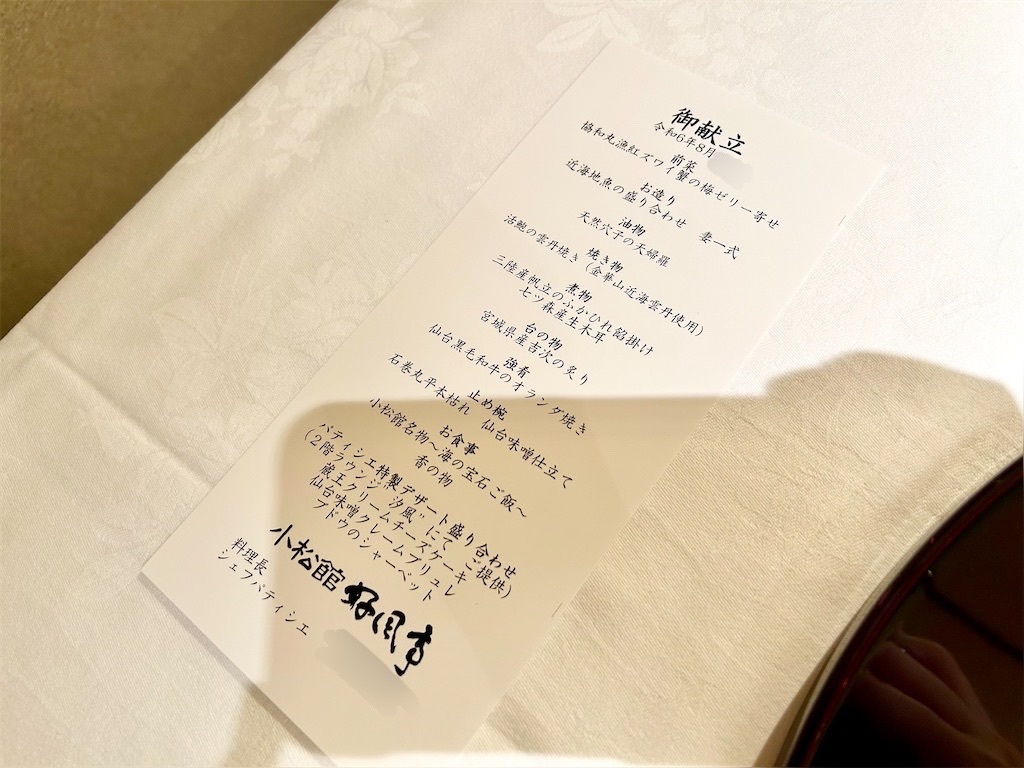 御献立
令和6年8月
前菜
協和丸漁紅ズワイ蟹の梅ゼリー寄せ
お造り
近海地魚の盛り合わせ 妻一式
油物
天然穴子の天婦羅
焼き物
活鮑の雲丹焼き（金華山近海雲丹使用）
煮物
三陸産帆立のふかひれ餡掛け
七ツ森産生木耳
台の物
宮城県産吉次の炙り
強肴
仙台黒毛和牛のオランダ焼き
止め椀
石巻丸平本枯れ 仙台味噌仕立て
お食事
小松館名物～海の宝石ご飯～
香の物
パティシエ特製デザート盛り合わせ
（2階ラウンジ"汐風"にてご提供）
蔵王クリームチーズケーキ
仙台味噌クレームブリュレ
ブドウのシャーベット
小松館 好風亭
料理長
シェフパティシエ